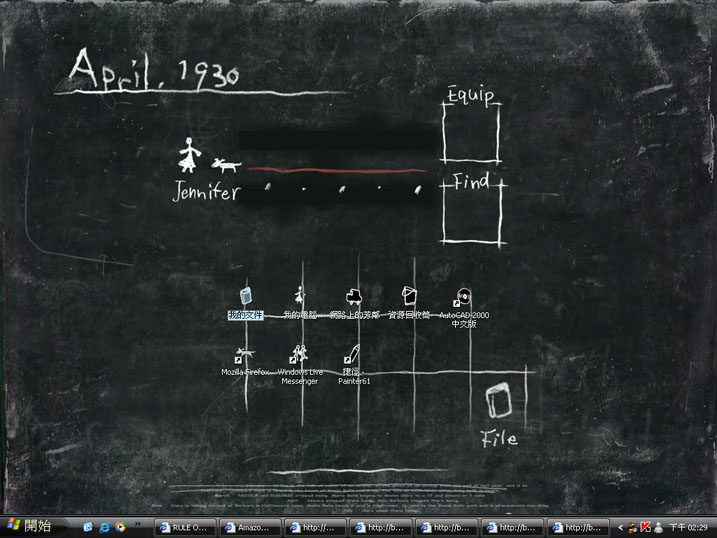 April, 1930
Equip
Jennifer
Find
我的文件
我的電腦
網路上的芳鄰
資源回收筒
AutoCAD 2000
中文版
Mozilla Firefox
Windows Live
Messenger
捷徑 -
Painter61
File
開始
RULE O...
Amazo...
http://...
http://b...
http://b...
http://b...
http://b...
http://b...
下午 02:29